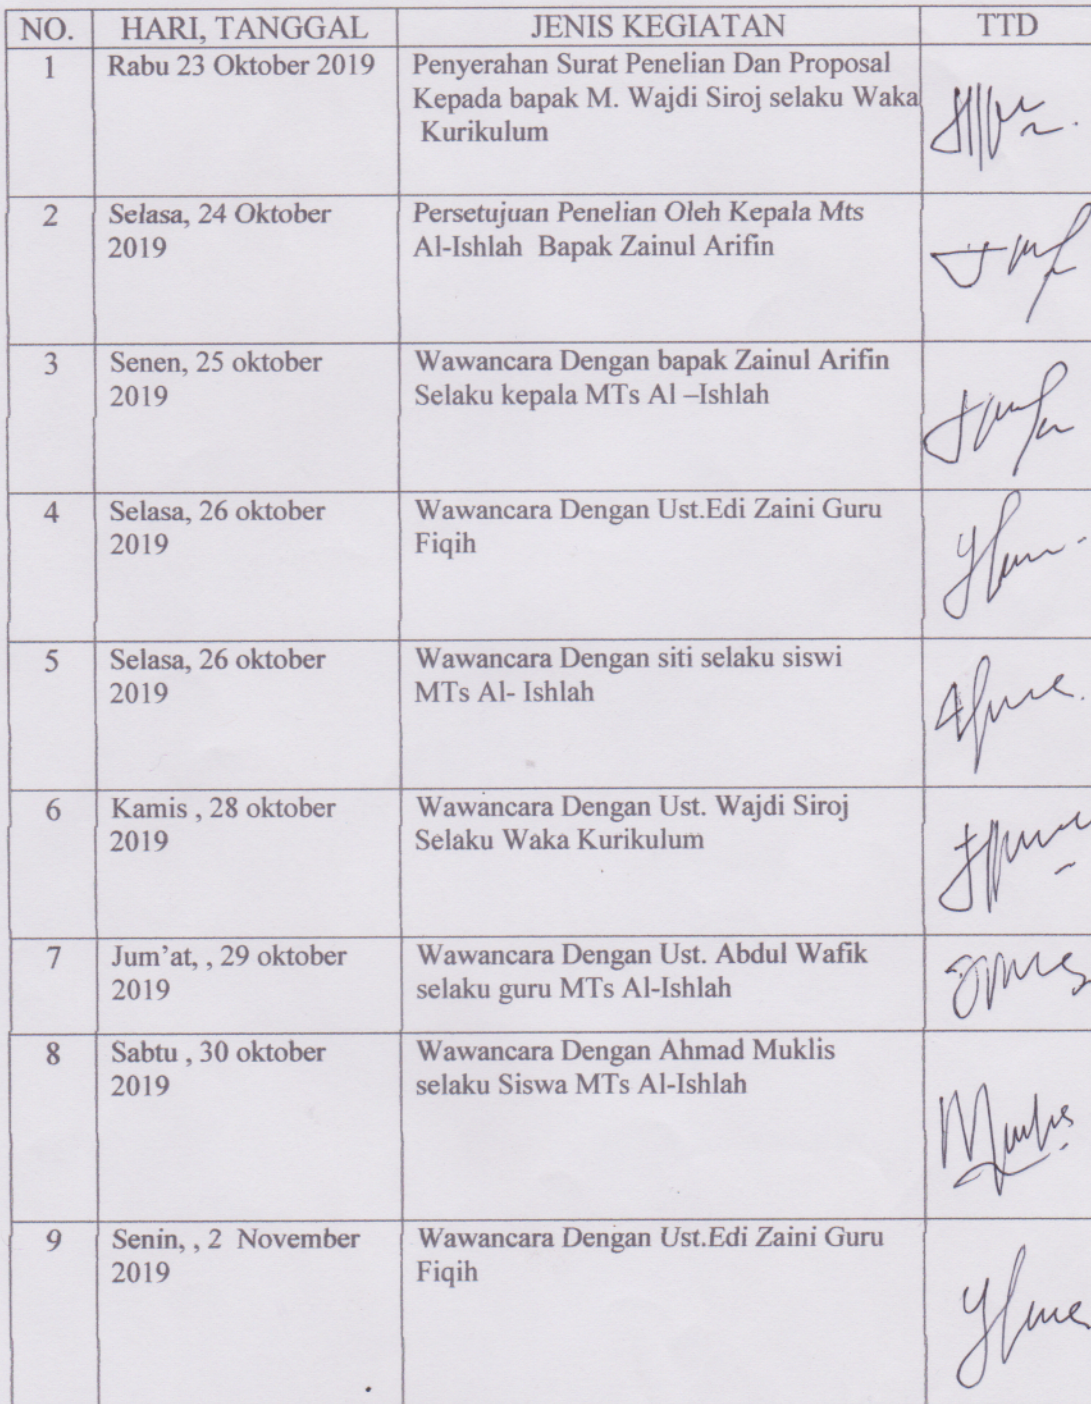 NO. HARI, TANGGAL JENIS KEGIATAN TTD
1 Rabu 23 Oktober 2019 Penyerahan Surat Penelian Dan Proposal
Kepada bapak M. Wajdi Siroj selaku Waka
Kurikulum
2 Selasa, 24 Oktober Persetujuan Penelian Oleh Kepala Mts
2019 Al-Ishlah Bapak Zainul Arifin
3 Senen, 25 oktober Wawancara Dengan bapak Zainul Arifin
2019 Selaku kepala MTs Al –Ishlah
4 Selasa, 26 oktober Wawancara Dengan Ust.Edi Zaini Guru
2019 Fiqih
5 Selasa, 26 oktober Wawancara Dengan siti selaku siswi
2019 MTs Al- Ishlah
6 Kamis , 28 oktober Wawancara Dengan Ust. Wajdi Siroj
2019 Selaku Waka Kurikulum
7 Jum’at, , 29 oktober Wawancara Dengan Ust. Abdul Wafik
2019 selaku guru MTs Al-Ishlah
8 Sabtu , 30 oktober Wawancara Dengan Ahmad Muklis
2019 selaku Siswa MTs Al-Ishlah
9 Senin, , 2 November Wawancara Dengan Ust.Edi Zaini Guru
2019 Fiqih